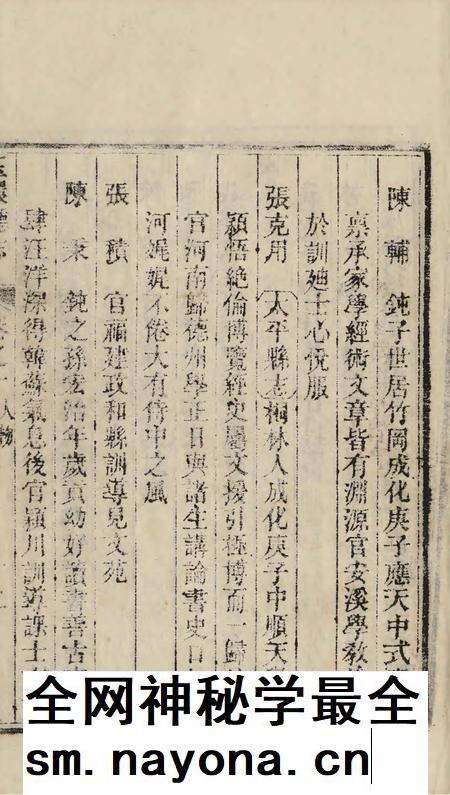 陳輔 鈍子世居竹岡成化庚子應天中式
禀承家學經術文章皆有淵源官安溪學教
於訓廸士心悅服
張克用 太平縣志桐林人成化庚子中順天
穎悟絶倫博覽經史屬文援引極博而一歸
官河南歸德州學正日與諸生講論書史口
河娓娓不倦大有侍中之風
張積 官福建政和縣訓導見文苑
陳東 鈍之孫宏治年歲貢幼好讀書善古
肆汪洋深得韓蘇氣息後官穎川訓導課士
人物
全网神秘学最全
sm.nayona.cn